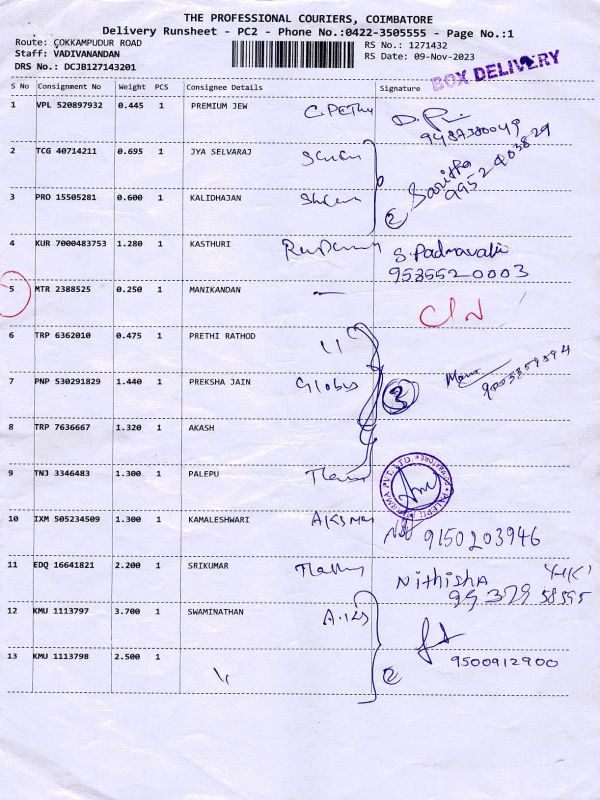 THE PROFESSIONAL COURIERS, COIMBATORE
Delivery Runsheet - PC2 - Phone No.:0422-3505555 - Page No.:1
Route: COKKAMPUDUR ROAD RS No.: 1271432
Staff: VADIVANANDAN RS Date: 09-Nov-2023
DRS No.: DCJB127143201
BOX DELIVERY
S No Consignment No Weight PCS Consignee Details Signature
1 VPL 520897932 0.445 1 PREMIUM JEW
2 TCG 40714211 0.695 1 JYA SELVARAJ
3 PRO 15505281 0.600 1 KALIDHAJAN 2
4 KUR 7000483753 1.280 1 KASTHURI S. Padmavathi
9535520003
5 MTR 2388525 0.250 1 MANIKANDAN —
6 TRP 6362010 0.475 1 PRETHI RATHOD 11
7 PNP 530291829 1.440 1 PREKSHA JAIN Globus 3
8 TRP 7636667 1.320 1 AKASH
9 TNJ 3346483 1.300 1 PALEPU
10 IXM 505234509 1.300 1 KAMALESHWARI 9150203946
11 EDQ 16641821 2.200 1 SRIKUMAR Nithisha
12 KMU 1113797 3.700 1 SWAMINATHAN
9500912900
13 KMU 1113798 2.500 1 2